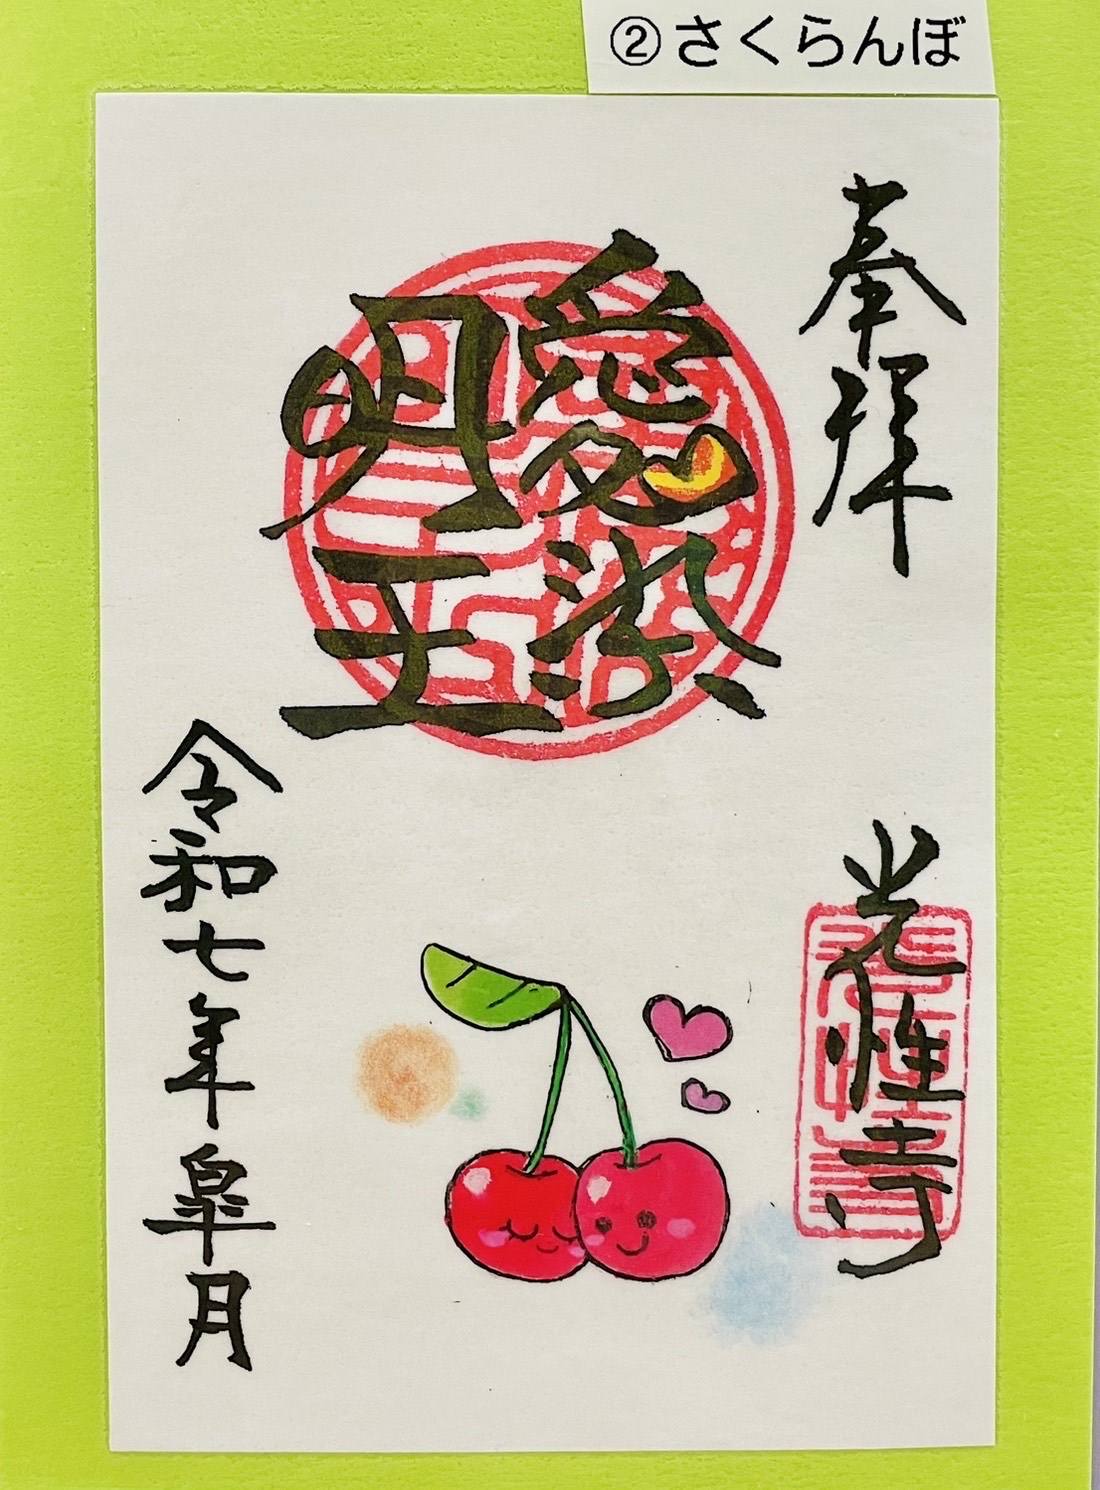 ②さくらんぼ
奉拝
愛染
明王
光性寺
令和七年皐月